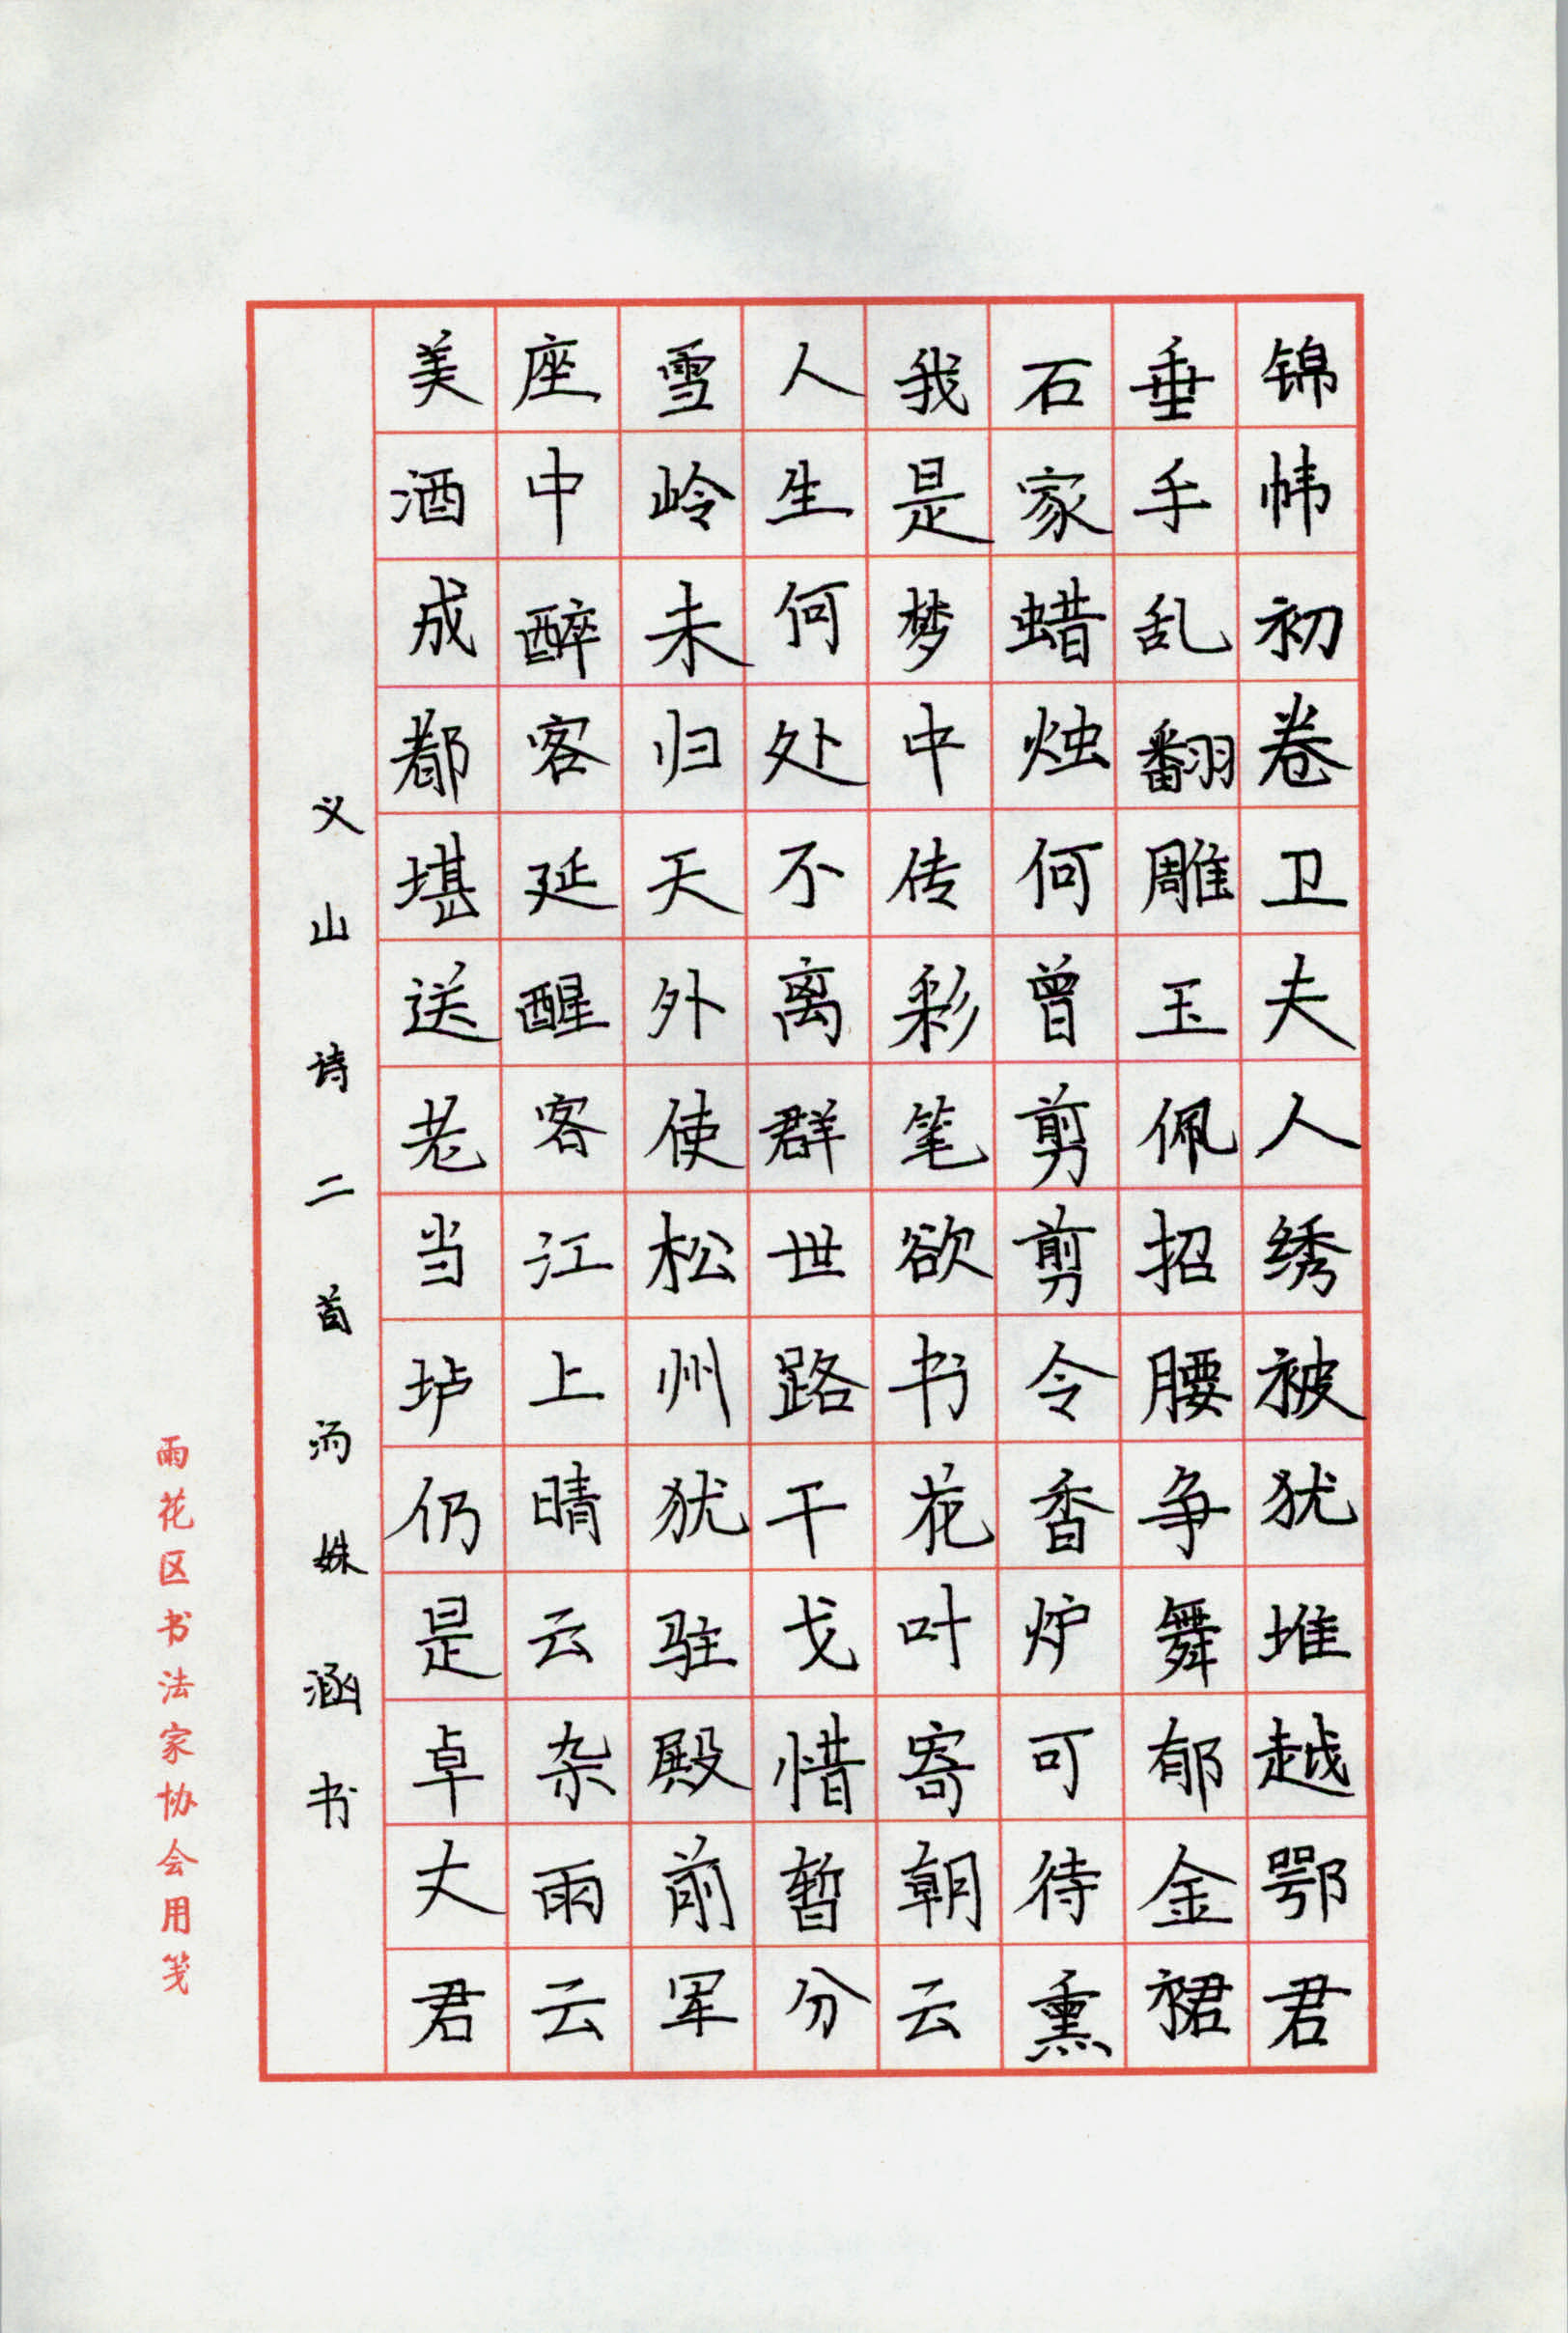 锦帏初卷卫夫人绣被犹堆越鄂君
垂手乱翻雕玉佩招腰争舞郁金裙
石家蜡烛何曾剪剪令香炉可待熏
我是梦中传彩笔欲书花叶寄朝云
人生何处不离群世路干戈惜暂分
雪岭未归天外使松州犹驻殿前军
座中醉客延醒客江上晴云杂雨云
美酒成都堪送老当垆仍是卓文君
义山诗二首 姝涵书
雨花区书法家协会用笺